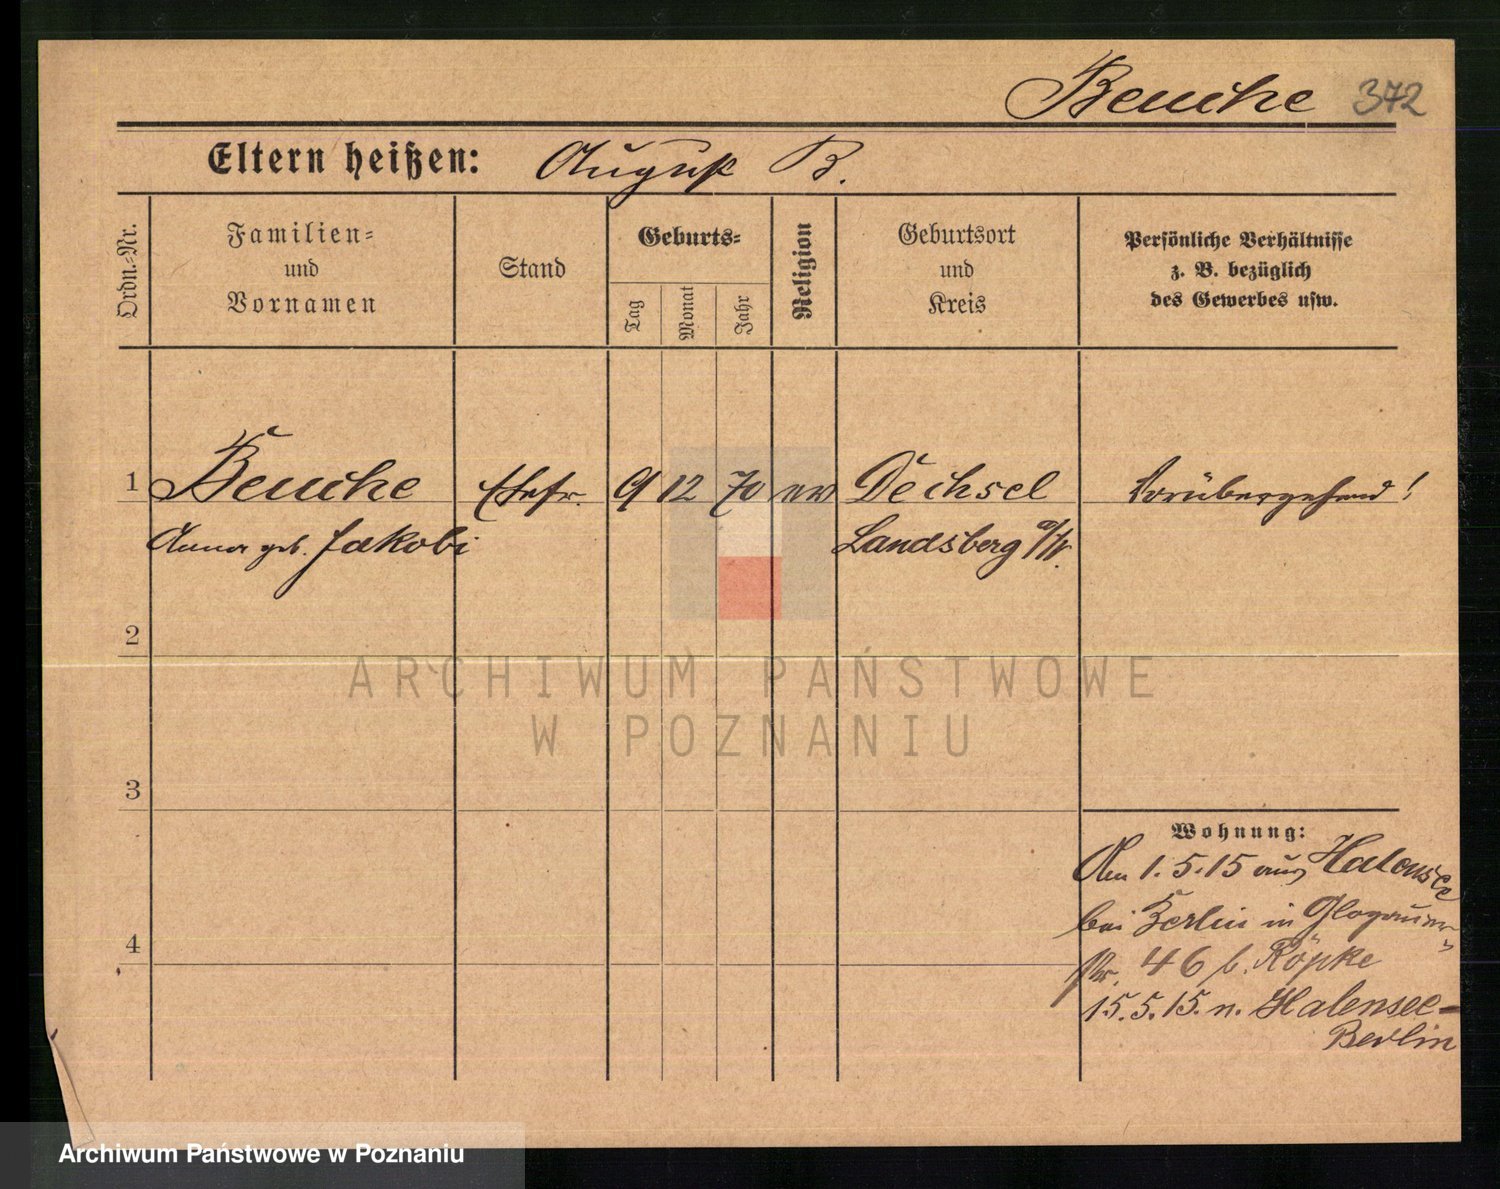 Beuche 372
Eltern heißen: August B.
Ordn.-Nr.
Familien-
und
Vornamen
Stand
Geburts-
Tag
Monat
Jahr
Religion
Geburtsort
und
Kreis
Persönliche Verhältnisse
z. B. bezüglich
des Gewerbes usw.
1 Beuche Ehefr. 9 12 70 ev Dechsel Vorübergehend!
Anna geb. Jakobi Landsberg a/W.
2
3
Wohnung:
Am 1.5.15 aus Halensee
bei Berlin in Glogauer-
4
str. 46 b. Röpke
15.5.15. n. Halensee-
Berlin
ARCHIWUM PAŃSTWOWE
W POZNANIU
Archiwum Państwowe w Poznaniu